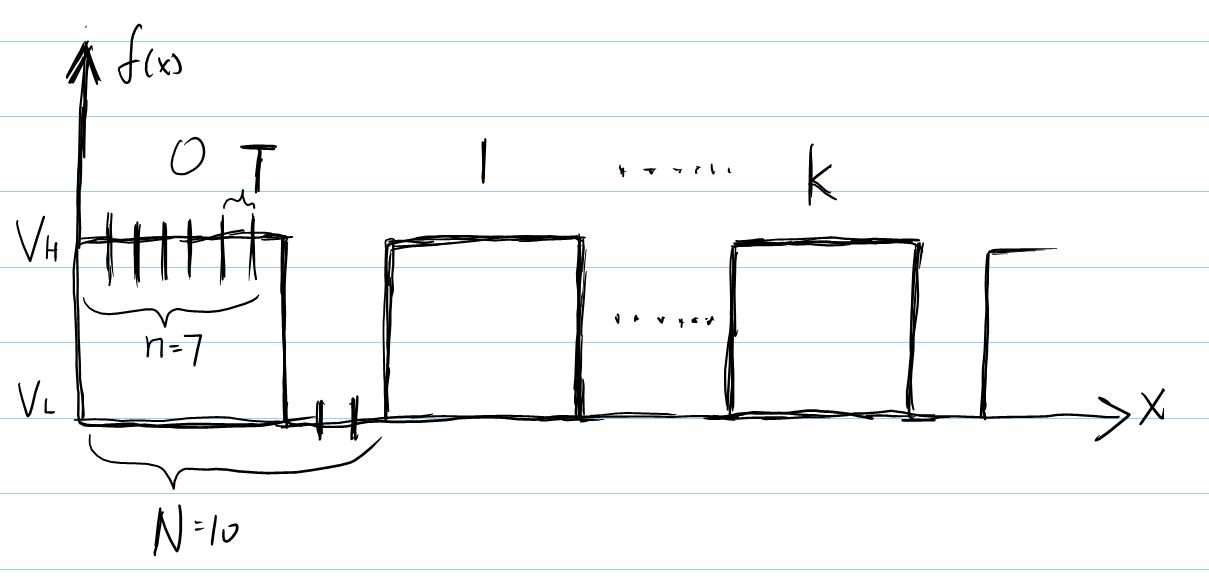 f(x)
0 T 1 ...... k
V_H
n=7 ......
V_L
X
N=10